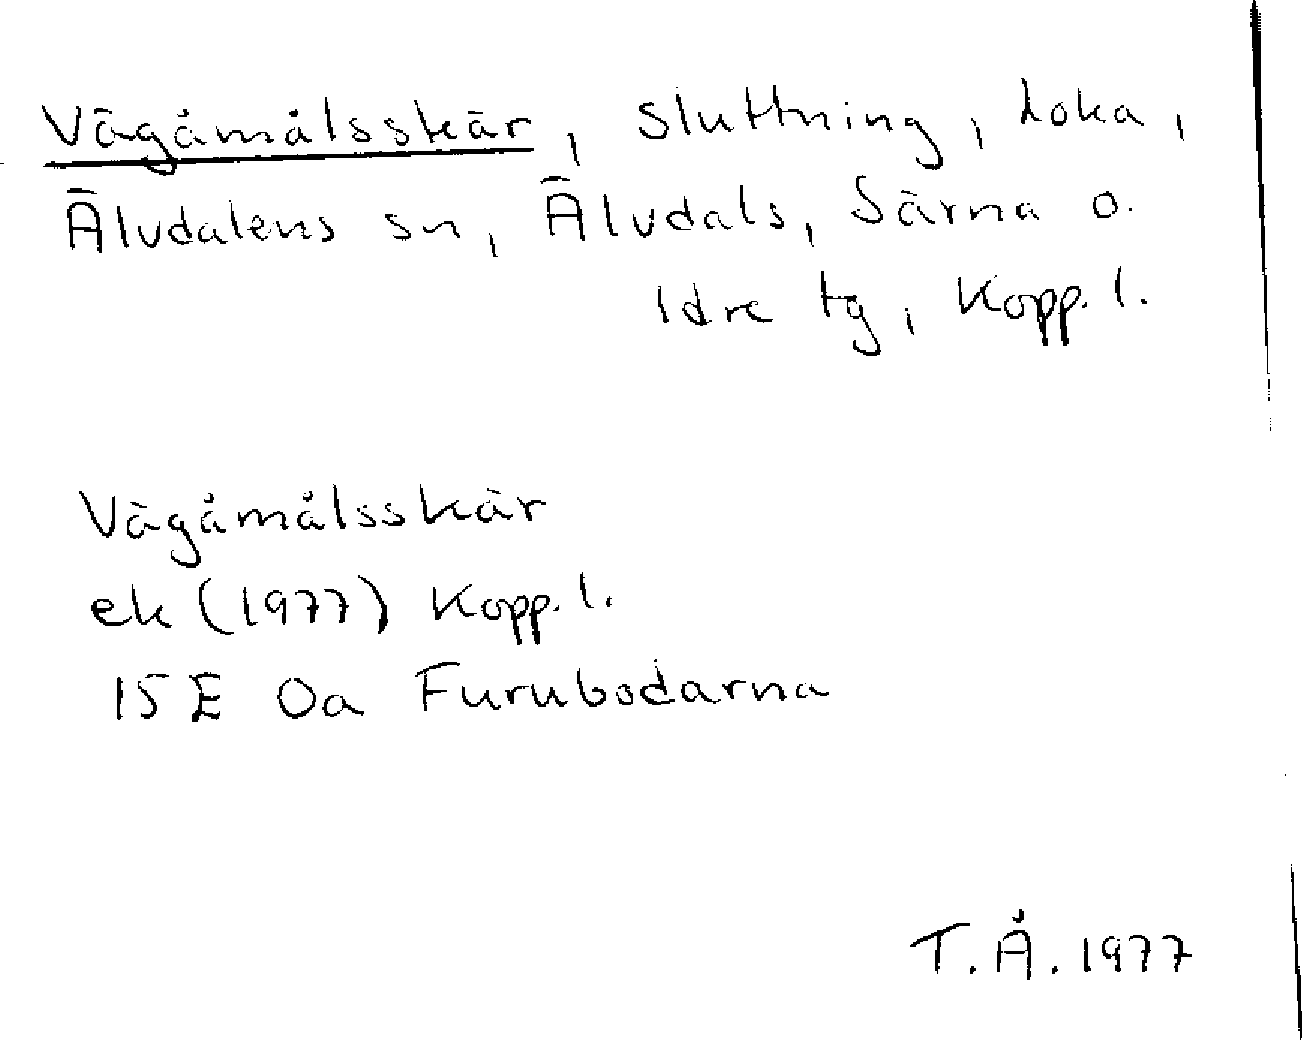 Vägåmålsskär, sluttning, Loka,
Älvdalens sn, Älvdals, Särna o.
Idre tg, Kopp. l.
Vägåmålsskär
ek (1977) Kopp. l.
15 E 0a Furubodarna
T.Å. 1977